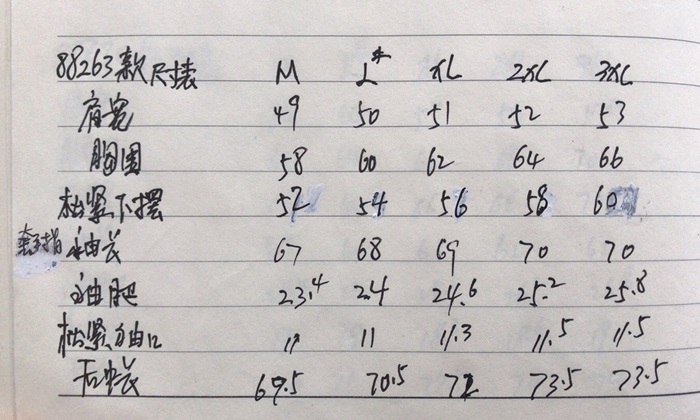 88263款尺裱 M L* XL 2XL 3XL
肩宽 49 50 51 52 53
胸围 58 60 62 64 66
松紧下摆 52 54 56 58 60
袖长 67 68 69 70 70
袖肥 23.4 24 24.6 25.2 25.8
松紧袖口 11 11 11.3 11.5 11.5
后中长 69.5 70.5 72 73.5 73.5